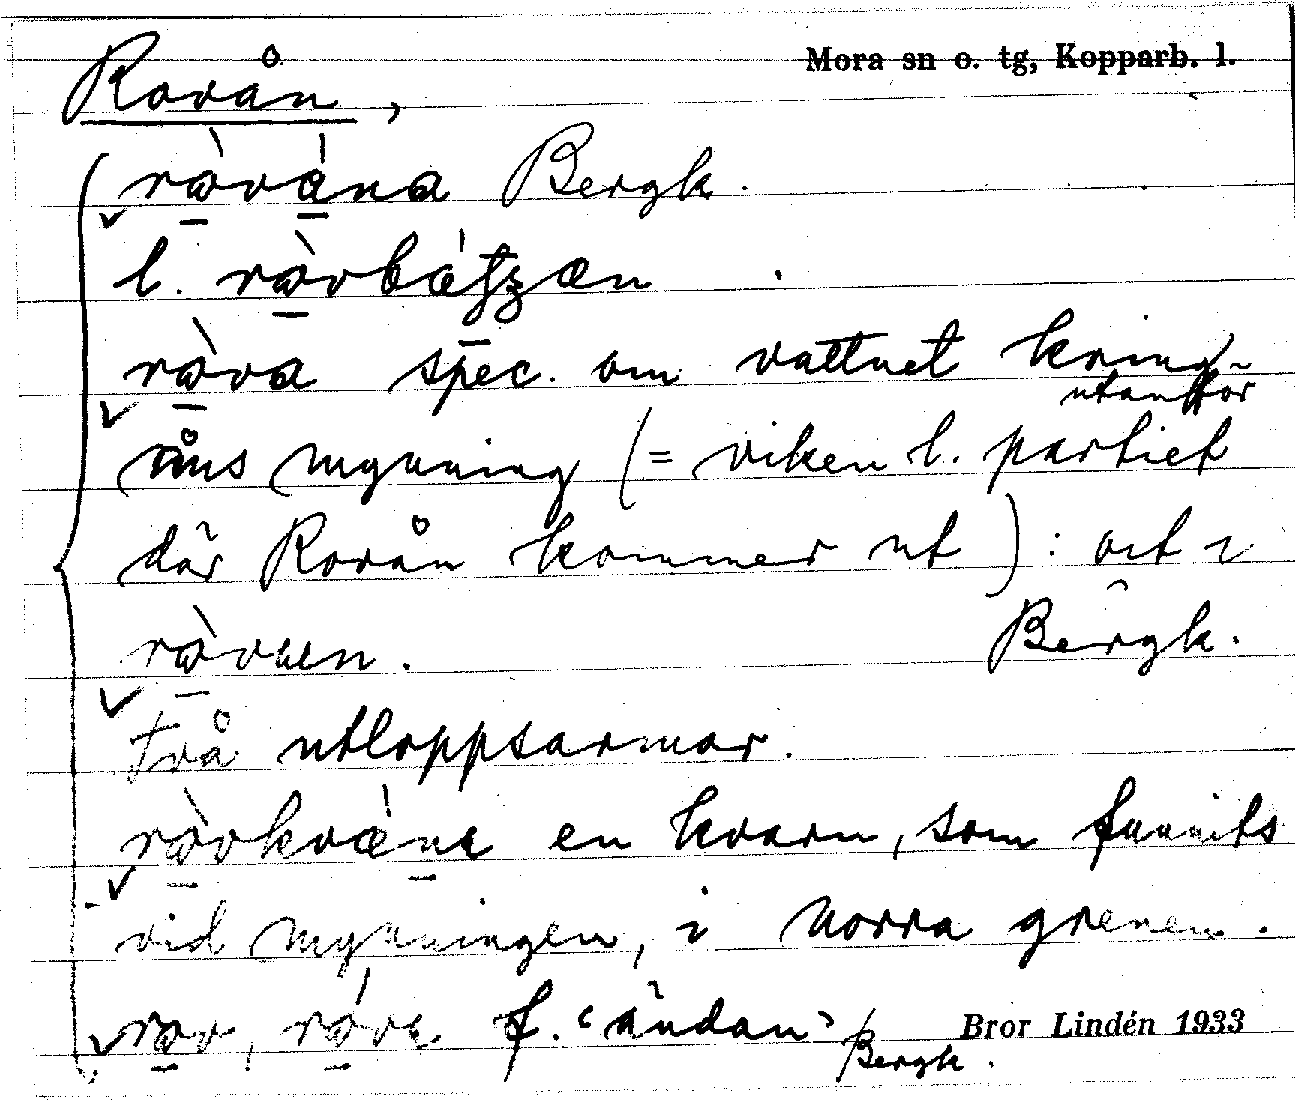 Mora sn o. tg, Kopparb. l.
Rovån,
ròvána Bergk.
l. ròvbátʒæn
ròva spec. om vattnet kring
utanför
åns mynning (= viken l. partiet
där Rovån kommer ut): out i
ròvæn. Bergk.
Två utloppsarmar.
ròvkvæ̀nɛ en kvarn, som funnits
vid mynningen, i norra grenen.
rov, róvɛ f. 'ändan' Bergk.
Bror Lindén 1933